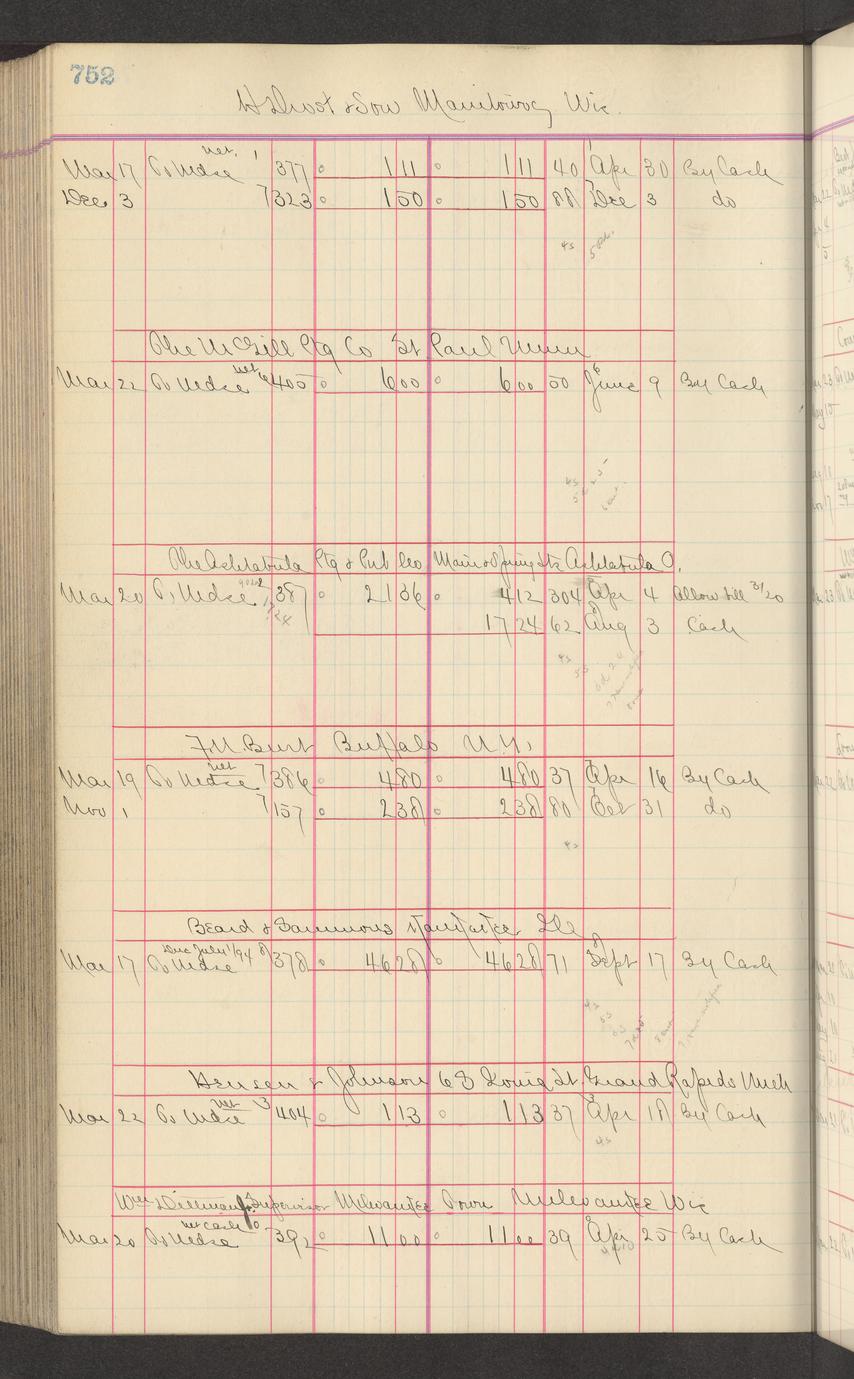 752
& Son Manitowoc Wis.
Mar 17 To Mdse net 1 377 111 111 40 Apr 30 By Cash
Dec 3 7 323 150 150 88 Dec 3 do
4s
The McGill Ptg Co St Paul Minn
Mar 22 To Mdse net 6 405 600 600 50 June 9 By Cash
4s
The Ashtabula Ptg & Pub Co Main & Spring Sts Ashtabula O.
Mar 20 To Mdse 387 2136 412 304 Apr 4 Allow bill 3/20
1724 62 Aug 3 Cash
4s 5s
F.N. Burt Buffalo N.Y.
Mar 19 To Mdse net 7 386 480 480 37 Apr 16 By Cash
Nov 1 7 157 238 238 80 Oct 31 do
4s
Beard & Sammons Ill
Mar 17 To Mdse Due July 1/94 8 378 4628 4628 71 Sept 17 By Cash
4s 5s 6s
Hensen & Johnson 63 Louis St. Grand Rapids Mich
Mar 22 To Mdse net 3 404 113 113 37 Apr 18 By Cash
4s
Wm Dittman Supervisor Milwaukee Town Milwaukee Wis
Mar 20 To Mdse net cash 10 392 1100 1100 39 Apr 25 By Cash